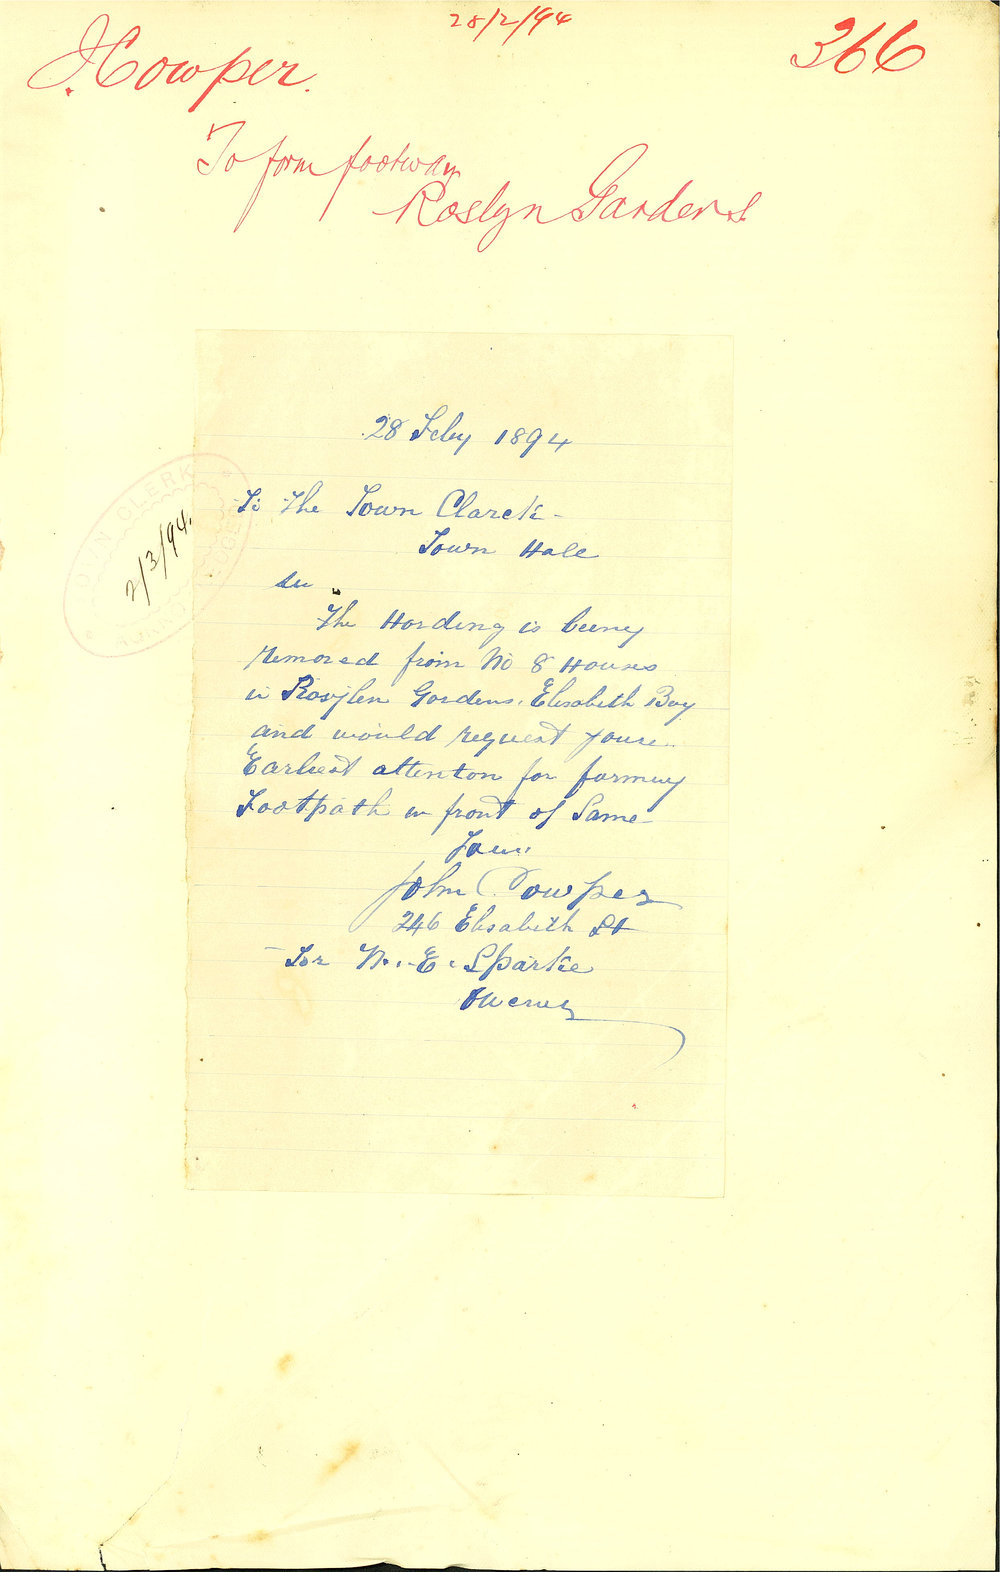 28/2/94
366
J Cowper.
To form footway
Roslyn Gardens.
28 Feby 1894
To The Town Clarck -
Town Hall
Sir
The Hording is being
removed from No 8 Houses
in Rosylen Gardens. Elisabeth Bay
and would request youre
Earliest attenton for forming
Footpath in front of Same
Yours
John Cowper
246 Elisabeth St
- For E. Sparke
Owener
TOWN CLERK
2/3/94.